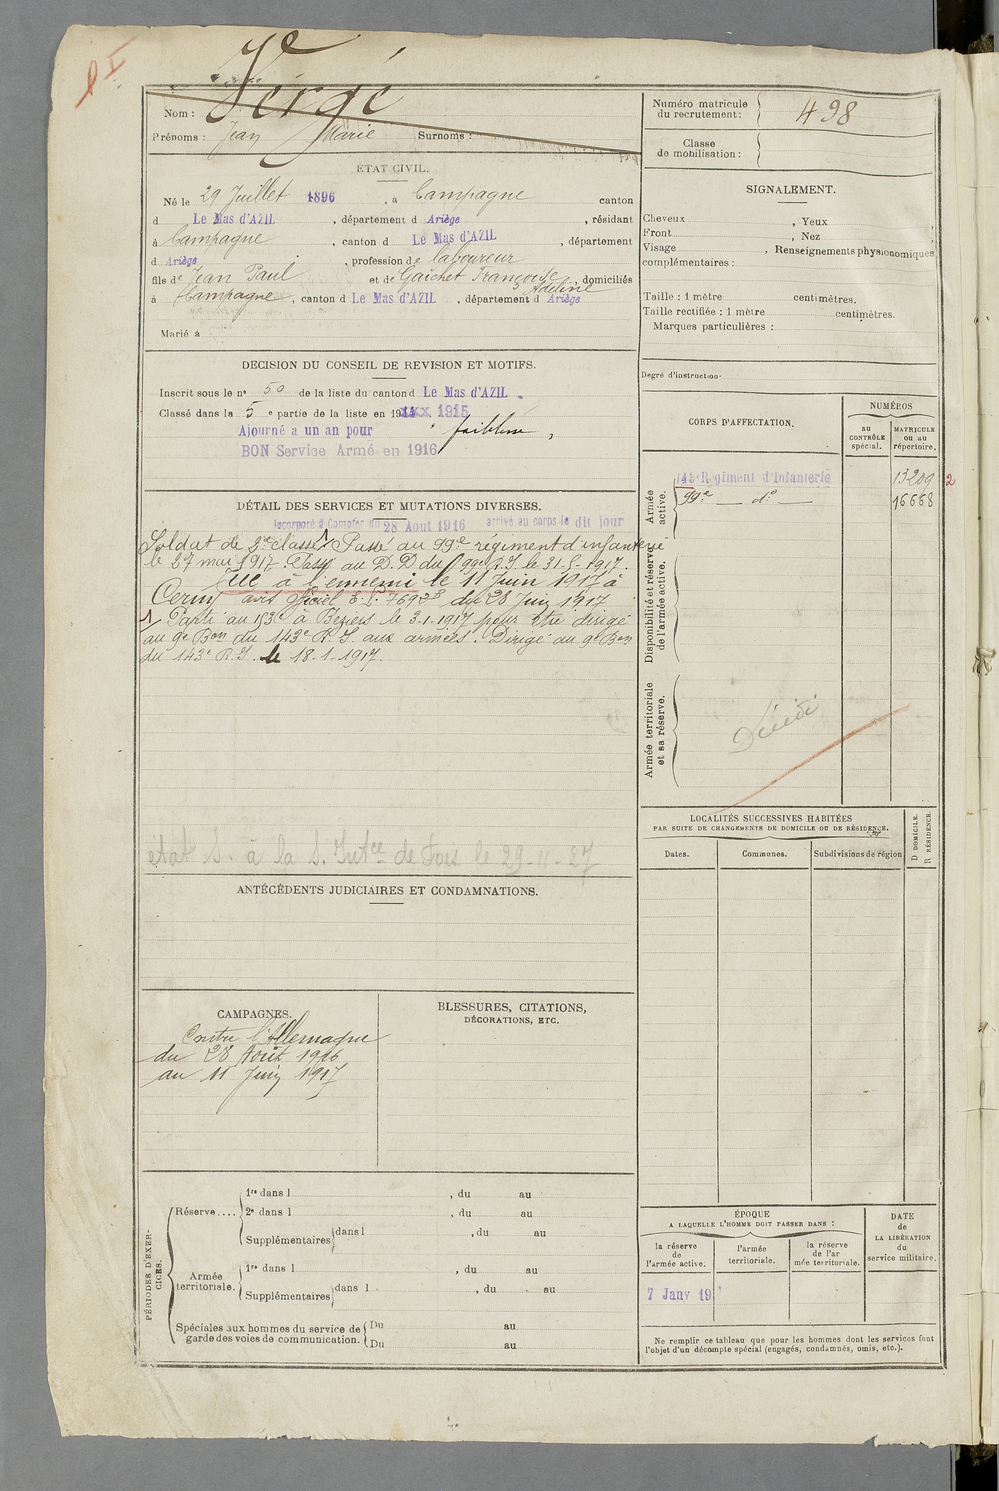 Vergé
Nom :
Prénoms : Jean Marie Surnoms :
Numéro matricule du recrutement : 498
Classe de mobilisation :
ÉTAT CIVIL.
Né le 29 Juillet 1896, à Campagne canton
d Le Mas d'AZIL, département d Ariège, résidant
à Campagne, canton d Le Mas d'AZIL, département
d Ariège, profession de laboureur
fils de Jean Paul et de Gaichet Françoise Adeline, domiciliés
à Campagne, canton d Le Mas d'AZIL, département d Ariège.
Marié à
SIGNALEMENT.
Cheveux, Yeux
Front, Nez
Visage, Renseignements physionomiques
complémentaires :
Taille : 1 mètre centimètres.
Taille rectifiée : 1 mètre centimètres.
Marques particulières :
Degré d'instruction.
DÉCISION DU CONSEIL DE REVISION ET MOTIFS.
Inscrit sous le n° 50 de la liste du canton d Le Mas d'AZIL.
Classé dans la 5 e partie de la liste en 1915
Ajourné a un an pour faiblesse,
BON Service Armé en 1916
CORPS D'AFFECTATION.
NUMÉROS
AU CONTRÔLE spécial.
MATRICULE ou au répertoire.
Armée active.
143e Régiment d'Infanterie 13209 2
99e d° 16668
Disponibilité et réserve de l'armée active.
Armée territoriale et sa réserve.
Décédé
DÉTAIL DES SERVICES ET MUTATIONS DIVERSES.
Incorporé à Compter du 28 Aout 1916 arrivé au corps le dit jour
Soldat de 2me classe. Passé au 99e régiment d'infanterie
le 27 mai 1917. Passé au D.D du 99e R.I. le 31-5-1917.
Tué à l'ennemi le 11 Juin 1917 à
Cerny avis officiel E.S. 7692 du 28 Juin 1917
Parti au 153e à Béziers le 3-1-1917 pour être dirigé
au 9e Bon du 143e R.I. aux armées. Dirigé au 9e Bon
du 143e R.I. le 18-1-1917.
état S. à la S. Intce de Foix le 29-11-27
LOCALITÉS SUCCESSIVES HABITÉES
PAR SUITE DE CHANGEMENTS DE DOMICILE OU DE RÉSIDENCE.
Dates. Communes. Subdivisions de région
D DOMICILE. R RÉSIDENCE.
ANTÉCÉDENTS JUDICIAIRES ET CONDAMNATIONS.
CAMPAGNES.
Contre l'Allemagne
du 28 Août 1916
au 11 Juin 1917
BLESSURES, CITATIONS,
DÉCORATIONS, ETC.
PÉRIODES D'EXERCICES.
Réserve....
1re dans l, du au
2e dans l, du au
Supplémentaires dans l, du au
Armée territoriale.
1re dans l, du au
Supplémentaires dans l, du au
Spéciales aux hommes du service de garde des voies de communication.
Du au
Du au
ÉPOQUE
A LAQUELLE L'HOMME DOIT PASSER DANS :
la réserve de l'armée active.
l'armée territoriale.
la réserve de l'ar mée territoriale.
DATE de LA LIBÉRATION du service militaire.
7 Janv 19
Ne remplir ce tableau que pour les hommes dont les services font
l'objet d'un décompte spécial (engagés, condamnés, omis, etc.).